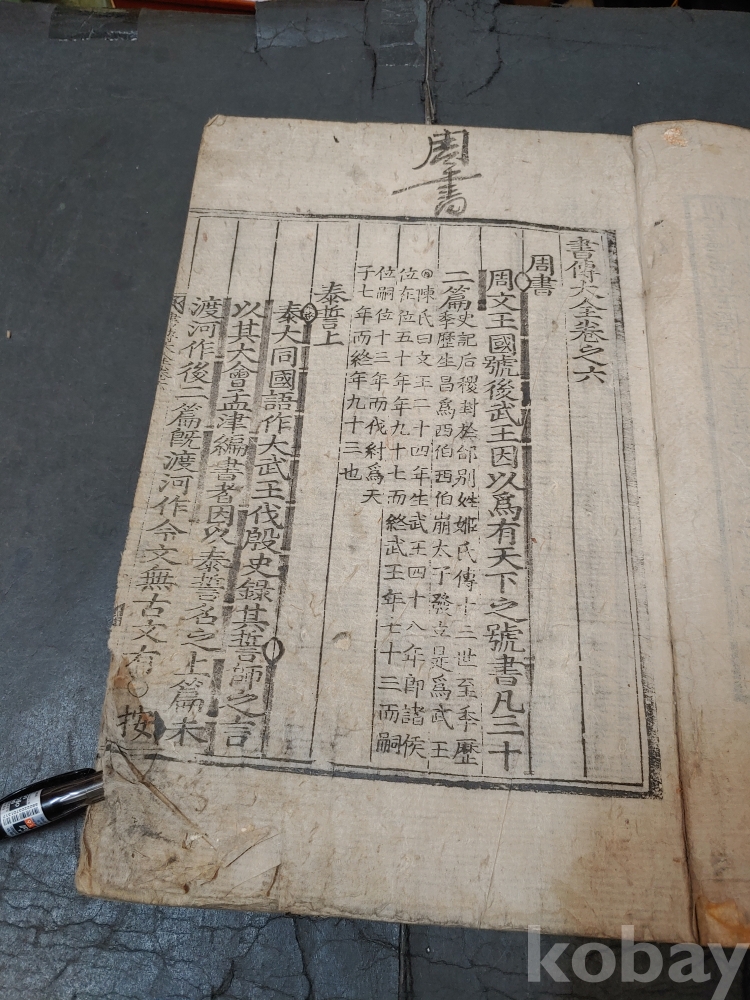 周書
書傳大全卷之六
周書
周文王國號後武王因以爲有天下之號書凡三十
二篇
史記后稷封於邰別姓姬氏傳十三世至季歷
季歷生昌爲西伯西伯崩太子發立是爲武王
陳氏曰文王二十四年生武王四十八年即諸侯
位在位五十年年九十七而終武王年七十三而嗣
位嗣位十三年而伐紂爲天
子七年而終年九十三也
泰誓上
泰大同國語作大武王伐殷史錄其誓師之言
以其大會孟津編書者因以泰誓名之上篇未
渡河作後二篇旣渡河作今文無古文有○按
kobay